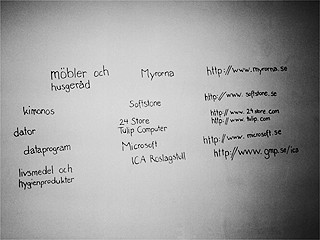 möbler och Myrorna http://www.myrorna.se
husgeråd
kimonos Softstone http://www.softstone.se
dator 24 Store http://www.24store.com
Tulip Computer http://www.tulip.com
dataprogram Microsoft http://www.microsoft.se
livsmedel och ICA Roslagstull http://www.gmp.se/ica
hygienprodukter